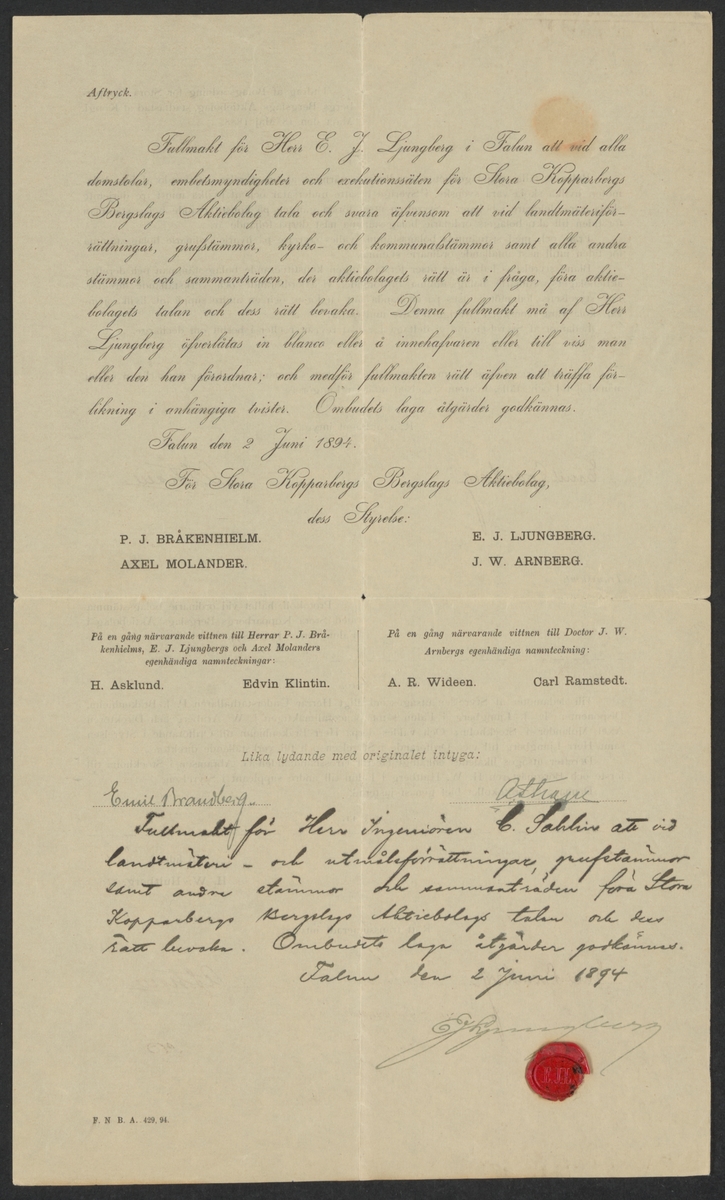 Aftryck.
Fullmakt för Herr E. J. Ljungberg i Falun att vid alla
domstolar, embetsmyndigheter och exekutionssäten för Stora Kopparbergs
Bergslags Aktiebolag tala och svara äfvensom att vid landtmäteriför-
rättningar, grufstämmor, kyrko- och kommunalstämmor samt alla andra
stämmor och sammanträden, der aktiebolagets rätt är i fråga, föra aktie-
bolagets talan och dess rätt bevaka. Denna fullmakt må af Herr
Ljungberg öfverlåtas in blanco eller å innehafvaren eller till viss man
eller den han förordnar; och medför fullmakten rätt äfven att träffa för-
likning i anhängiga tvister. Ombudets laga åtgärder godkännas.
Falun den 2 Juni 1894.
För Stora Kopparbergs Bergslags Aktiebolag,
dess Styrelse:
P. J. BRÅKENHIELM.
AXEL MOLANDER.
E. J. LJUNGBERG.
J. W. ARNBERG.
På en gång närvarande vittnen till Herrar P. J. Brå-
kenhielms, E. J. Ljungbergs och Axel Molanders
egenhändiga namnteckningar:
H. Asklund. Edvin Klintin.
På en gång närvarande vittnen till Doctor J. W.
Arnbergs egenhändiga namnteckning:
A. R. Wideen. Carl Ramstedt.
Lika lydande med originalet intyga:
Emil Brandberg.
Fullmakt för Herr Ingeniören C. Sahlin att vid
landtmäteri- och utmålsförrättningar, grufstämmor
samt andra stämmor och sammanträden föra Stora
Kopparbergs Bergslags Aktiebolags talan och dess
rätt bevaka. Ombudets laga åtgärder godkännas.
Falun den 2 Juni 1894
E J Ljungberg
F. N B. A. 429, 94.